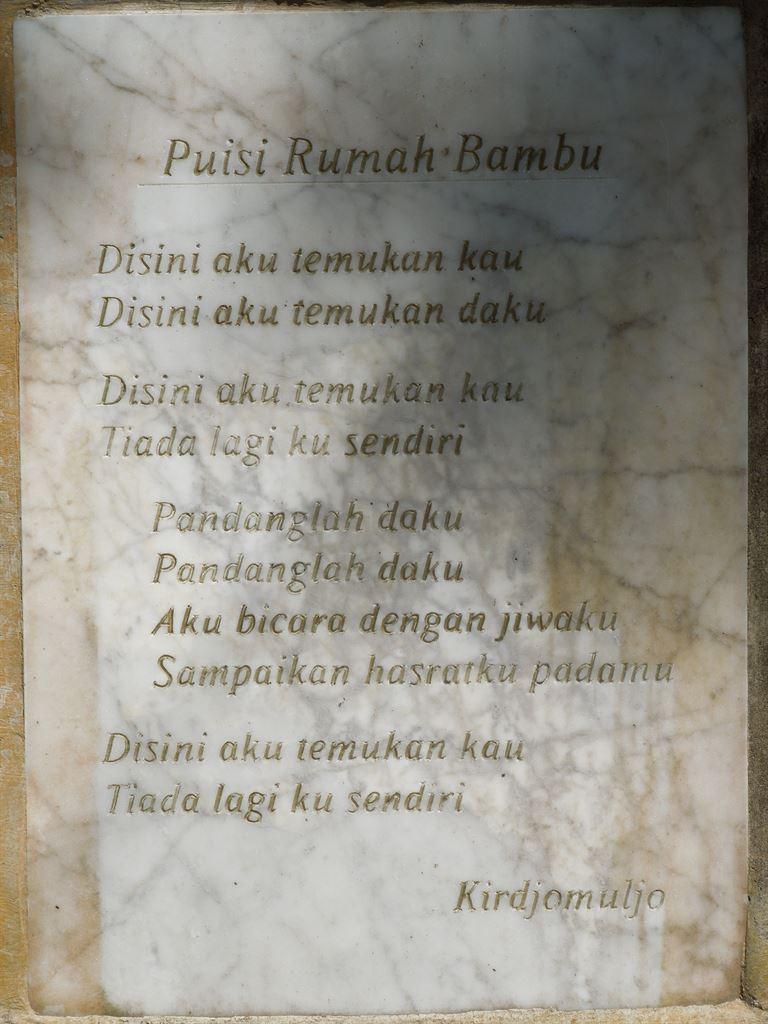 Puisi Rumah Bambu
Disini aku temukan kau
Disini aku temukan daku
Disini aku temukan kau
Tiada lagi ku sendiri
Pandanglah daku
Pandanglah daku
Aku bicara dengan jiwaku
Sampaikan hasratku padamu
Disini aku temukan kau
Tiada lagi ku sendiri
Kirdjomuljo